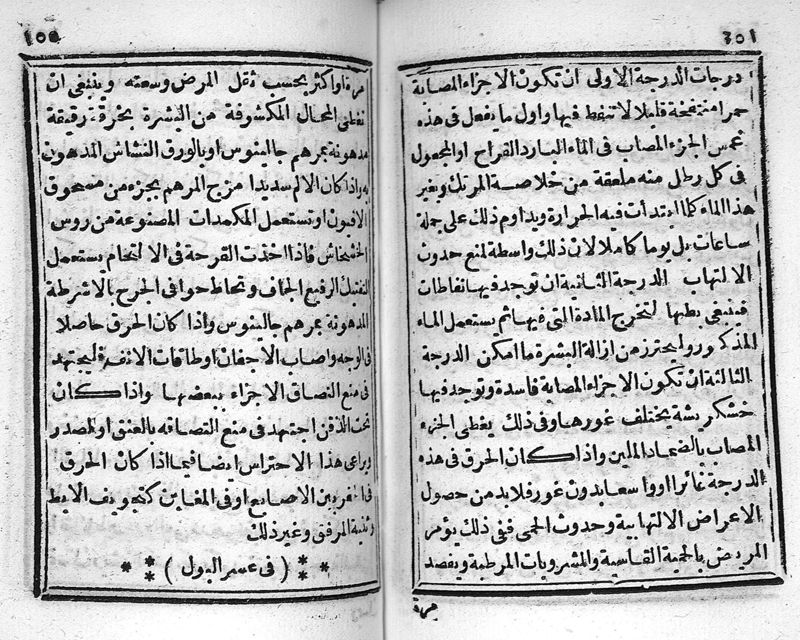 ١٥٤
درجات الدرجة الاولى ان تكون الاجزاء المصابة
حمرا منتفخة قليلا لا تنفط فيها واول ما يفعل فى هذه
غمس الجزء المصاب فى الماء البارد القراح او المجعول
فى كل رطل منه ملعقة من خلاصة المرتك ويغير
هذا الماء كلما ابتدأت فيه الحرارة ويداوم ذلك على جملة
ساعات بل يوما كاملا لان ذلك واسطة لمنع حدوث
الالتهاب الدرجة الثانية ان توجد فيها نفاطات
فينبغى بطها لتخرج المادة التى فيها ثم يستعمل الماء
المذكور ويحترز من ازالة البشرة ما امكن الدرجة
الثالثة ان تكون الاجزاء المصابة فاسدة وتوجد فيها
خشكريشة يختلف غورها وفى ذلك يغطى الجزء
المصاب بالضماد الملين واذا كان الحرق فى هذه
الدرجة غائرا او واسعا بدون غور فلا بد من حصول
الاعراض الالتهابية وحدوث الحمى ففى ذلك يؤمر
المريض بالحمية القاسية والمشروبات المرطبة ويفصد
مرة
١٥٥
مرة او اكثر بحسب ثقل المرض وسعته وينبغى ان
تغطى المحال المكشوفة من البشرة بخرق رقيقة
مدهونة بمرهم جالينوس او بالورق النشاش المدهون
به واذا كان الالم شديدا مزج المرهم بجزء من مسحوق
الافيون او تستعمل المكمدات المصنوعة من روس
الخشخاش فاذا اخذت القرحة فى الالتحام يستعمل
التفتيك الرفيع الجاف وتحاط حوافى الجرح بالاشرطة
المدهونة بمرهم جالينوس واذا كان الحرق حاصلا
فى الوجه واصاب الاجفان او طاقات الانف فليجتهد
فى منع التصاق الاجزاء ببعضها واذا كان
تحت الذقن اجتهد فى منع التصاقه بالعنق او الصدر
ويراعى هذا الاحتراس ايضا فيما اذا كان الحرق
فى الفرج بين الاصابع او فى المغابن كتجويف الابط
وثنية المرفق وغير ذلك
(فى عسر البول)